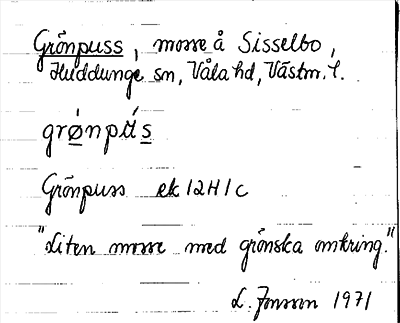 Grönpuss, mosse å Sisselbo,
Huddunge sn, Våla hd, Västm. l.
grø̀npús
Grönpuss ek 12H1c
"Liten mosse med grönska omkring."
L. Jonsson 1971